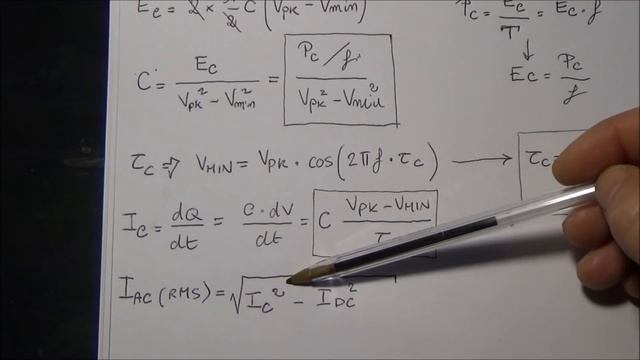 E_C = 2 × ½ C (V_PK² − V_min²)
P_C = E_C / T = E_C · f
E_C = P_C / f
C = E_C / (V_PK² − V_min²) = (P_C / f) / (V_PK² − V_min²)
τ_C ⇒ V_MIN = V_PK · cos(2πf · τ_C) → τ_C =
I_C = dQ/dt = C · dV/dt = C (V_PK − V_MIN) / τ
I_AC (RMS) = √(I_C² − I_DC²)